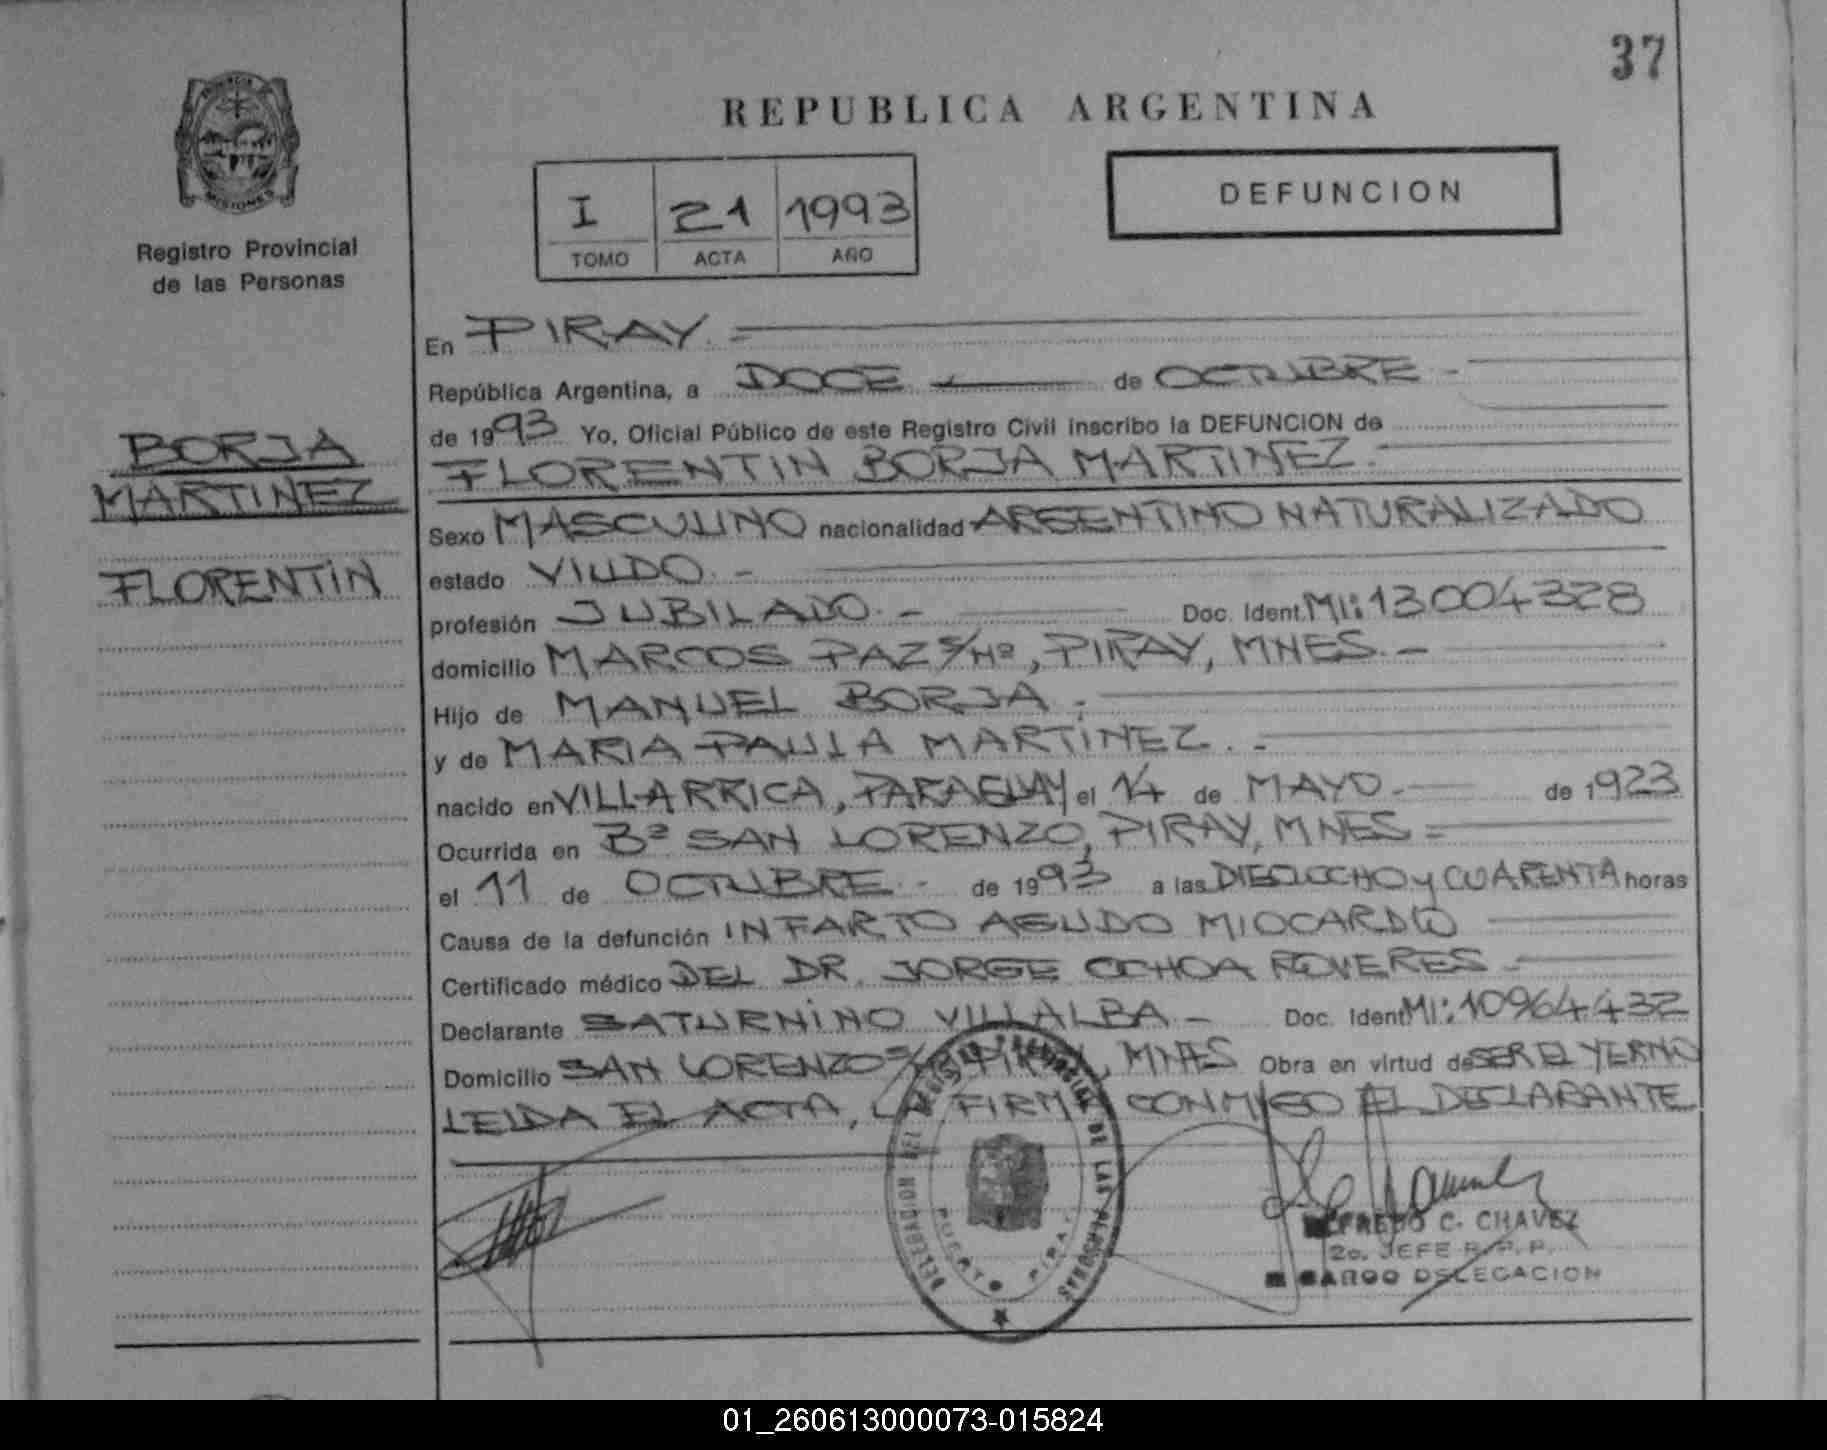 37
PROVINCIA DE
MISIONES
Registro Provincial
de las Personas
REPUBLICA ARGENTINA
I 21 1993
TOMO ACTA AÑO
DEFUNCION
BORJA
MARTINEZ
FLORENTIN
En PIRAY.=
República Argentina, a DOCE de OCTUBRE -
de 1993 Yo, Oficial Público de este Registro Civil inscribo la DEFUNCION de
FLORENTIN BORJA MARTINEZ.
Sexo MASCULINO nacionalidad ARGENTINO NATURALIZADO
estado VIUDO. -
profesión JUBILADO. - Doc. Ident. MI: 13004328
domicilio MARCOS PAZ S/Nº, PIRAY, MNES. -
Hijo de MANUEL BORJA -
y de MARIA PAULA MARTINEZ. -
nacido en VILLARRICA, PARAGUAY el 14 de MAYO. - de 1923
Ocurrida en Bº SAN LORENZO, PIRAY, MNES =
el 11 de OCTUBRE - de 1993 a las DIECIOCHO y CUARENTA horas
Causa de la defunción INFARTO AGUDO MIOCARDIO
Certificado médico DEL DR. JORGE OCHOA ROVERES -
Declarante SATURNINO VILLALBA - Doc. Ident MI: 10964432
Domicilio SAN LORENZO S/Nº PIRAY, MNES Obra en virtud de SER EL YERNO
LEIDA EL ACTA, LA FIRMA CONMIGO EL DECLARANTE
DELEGACION DEL REGISTRO PROVINCIAL DE LAS PERSONAS
PUERTO PIRAY
ALFREDO C. CHAVEZ
2o. JEFE R. P. P.
A CARGO DELEGACION
01_260613000073-015824